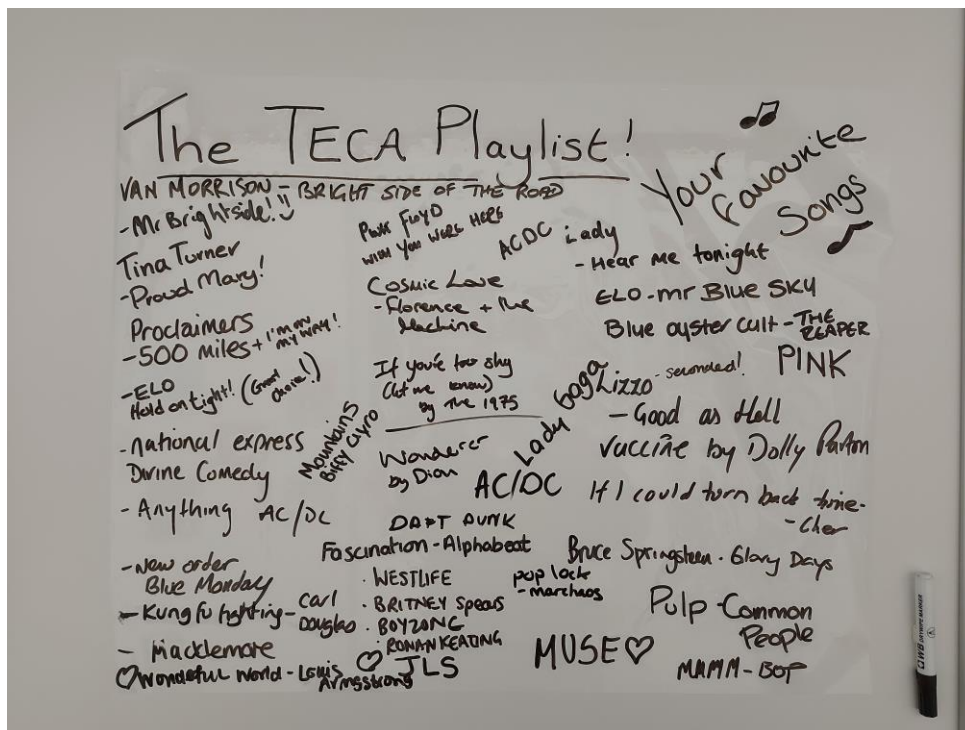 The TECA Playlist!
Your
Favourite
Songs
VAN MORRISON - BRIGHT SIDE OF THE ROAD
- Mr Brightside!
Tina Turner
- Proud Mary!
Proclaimers
- 500 miles + I'M ON
MY WAY!
- ELO
Hold on tight! (Great
choice!)
- national express
Divine Comedy
- Anything AC/DC
- New order
Blue Monday
- Kung fu fighting - Carl
Douglas
- Macklemore
♡ Wondeful World - Louis
Armgstrong
PINK FLOYD
WISH YOU WERE HERE
Cosmic Love
- Florence + the
Machine
If you're too shy
(let me know)
by The 1975
Mountains
Biffy Clyro
Wanderer
by Dion
AC/DC
DAFT PUNK
Fascination - Alphabeat
· WESTLIFE
· BRITNEY Spears
· BOYZONE
· RONAN KEATING
♡ JLS
pop lock
ACDC
Lady
- Hear me tonight
ELO - mr Blue SKY
Blue oyster cult - THE
REAPER
Lady Gaga
Lizzo - seconded!
- Good as Hell
PINK
Vaccine by Dolly Parton
If I could turn back time -
- Cher
Bruce Springsteen · Glory Days
Pulp - Common
People
MUSE ♡
MMMM - BOP